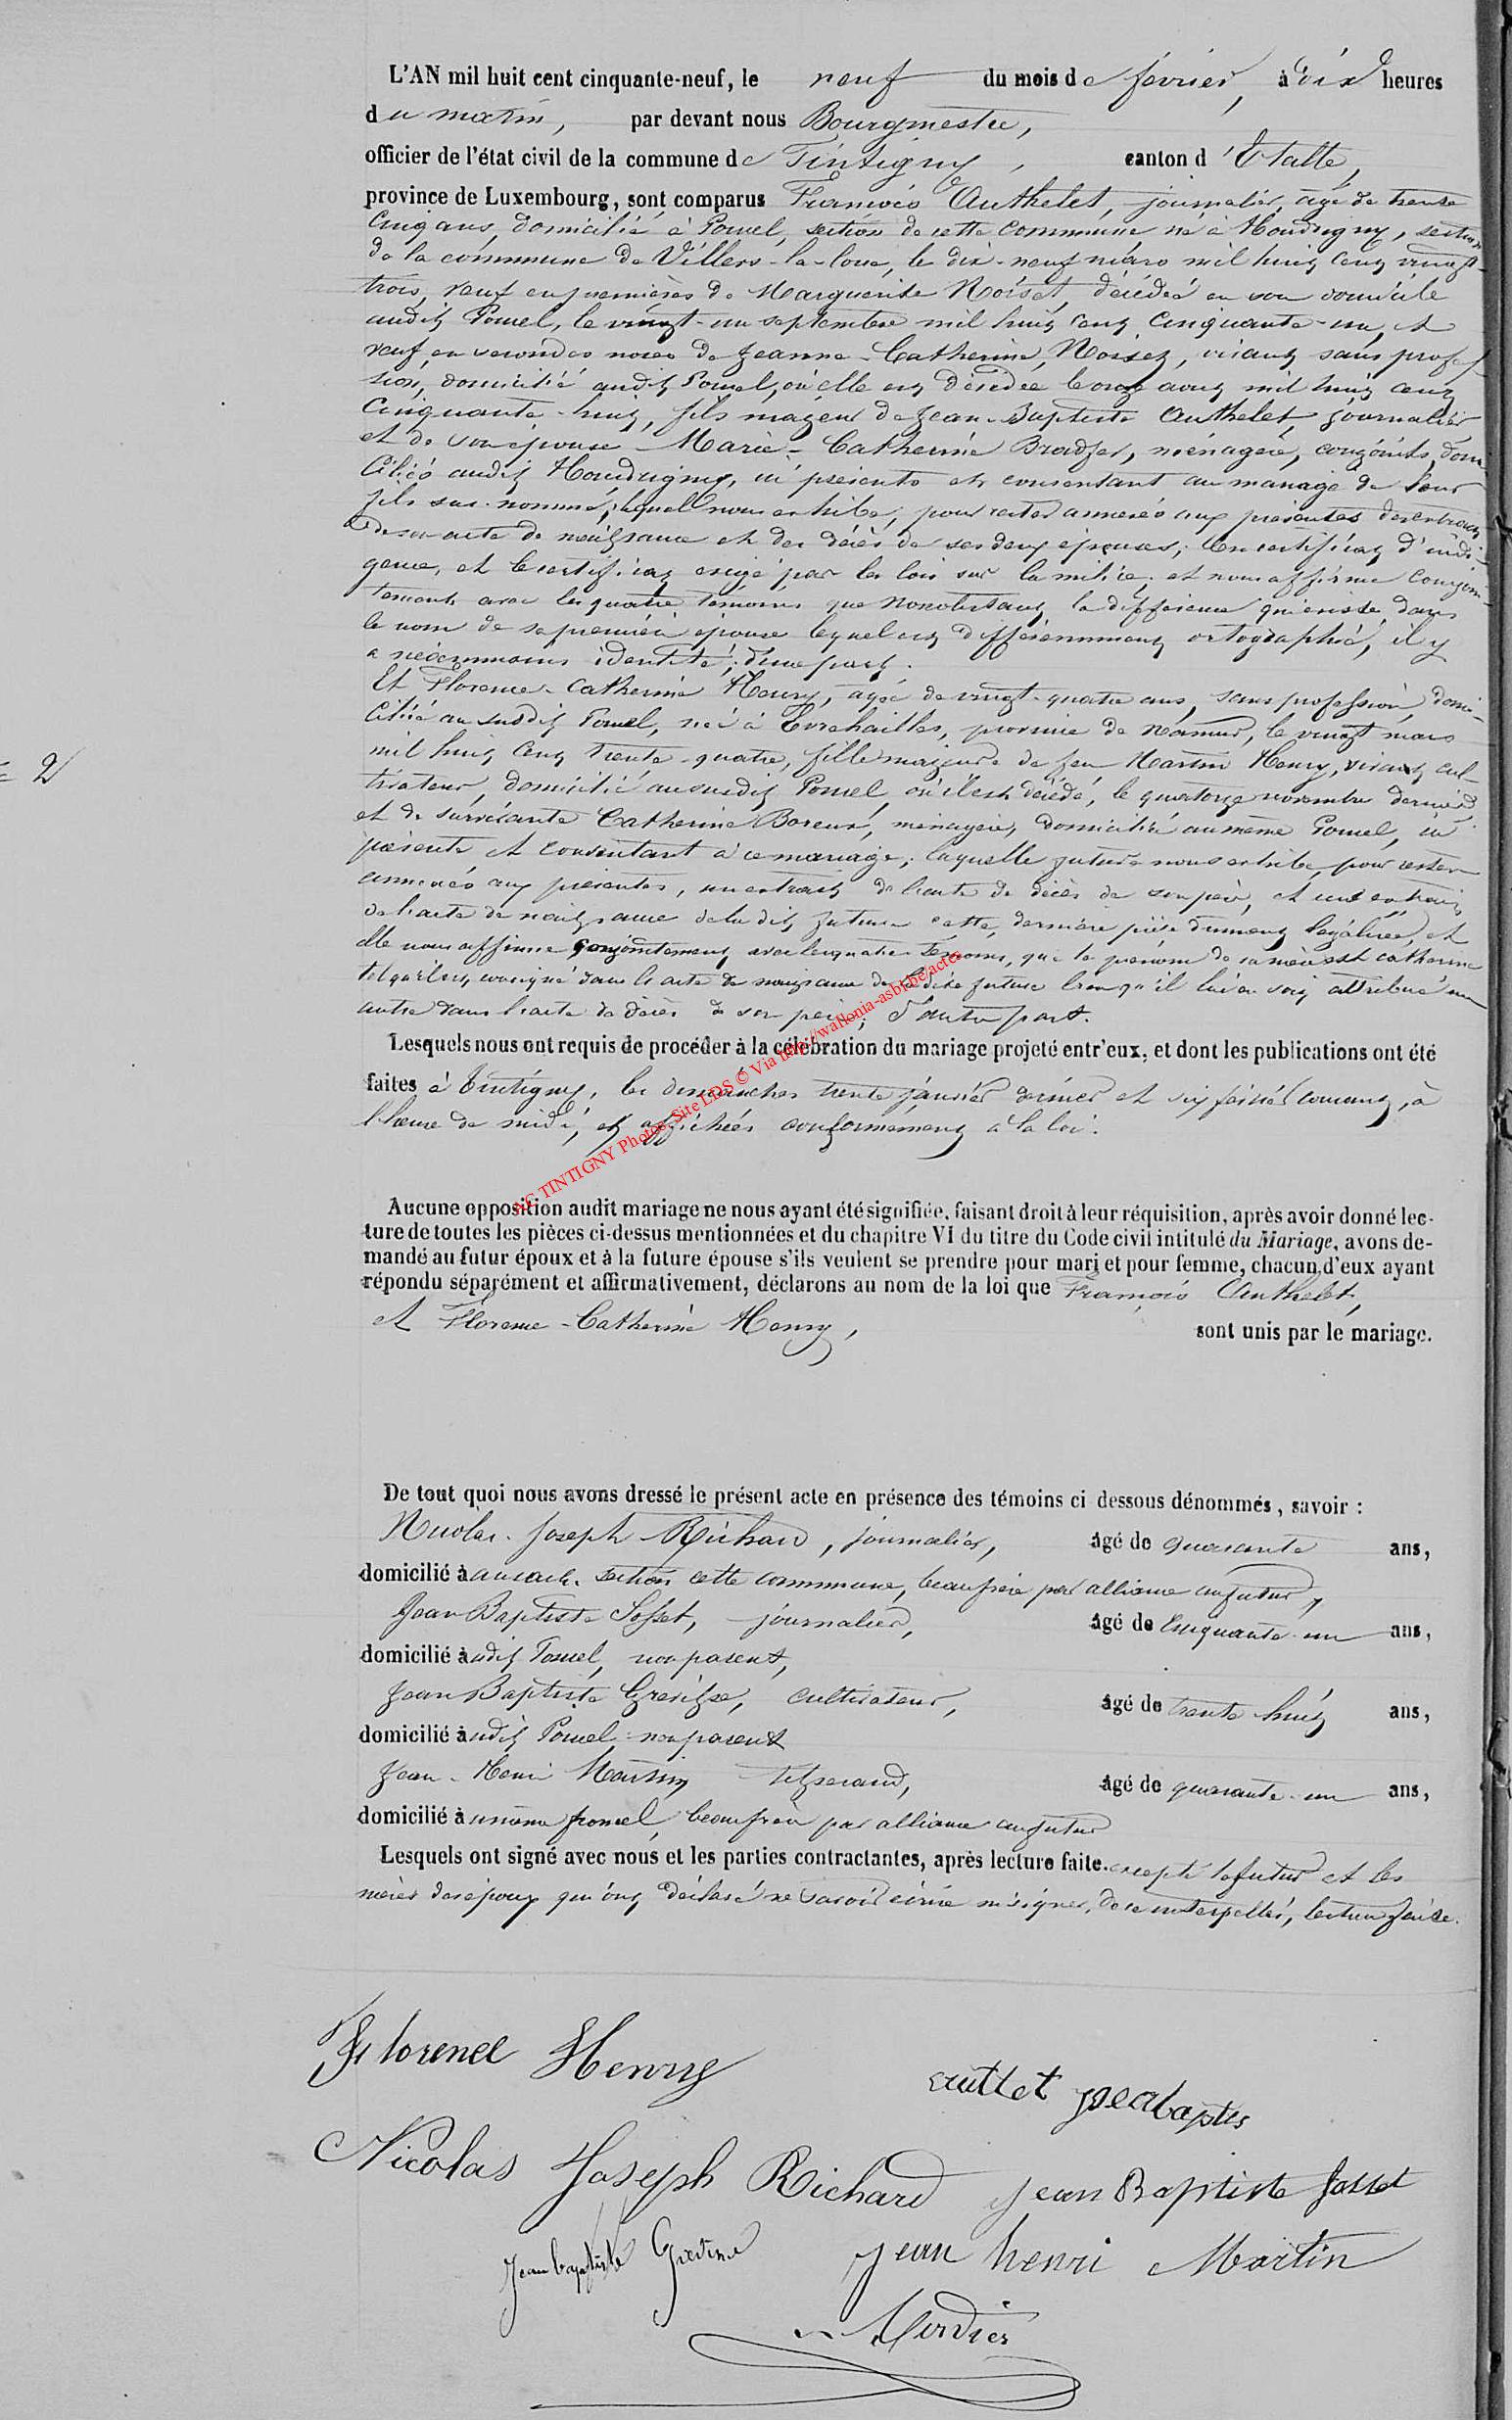 L'AN mil huit cent cinquante-neuf, le neuf du mois de février, à dix heures
du matin, par devant nous Bourgmestre,
officier de l'état civil de la commune de Tintigny, canton d'Etalle,
province de Luxembourg, sont comparus François Authelet, journalier, âgé de trente
cinq ans, domicilié à Poncel, section de cette commune né à Houdrigny, section
de la commune de Villers-la-loue, le dix-neuf mars mil huit cent vingt-
trois, veuf en premières de Marguerite Noiset, décédée en son domicile
audit Poncel, le vingt-un septembre mil huit cent cinquante-un, et
veuf en secondes noces de Jeanne-Catherine Noisez, vivant sans profes-
sion, domicilié audit Poncel, où elle est décédée le onze aout mil huit cent
cinquante-huit, fils majeur de Jean-Baptiste Authelet, journalier
et de son épouse Marie-Catherine Bradfer, ménagère, conjoints, domi-
ciliés audit Houdrigny, ici présents et consentant au mariage de leur
fils sus-nommé; lequel nous exhibe, pour rester annexés aux présentes des extraits
de son acte de naissance et des décès de ses deux épouses; un certificat d'indi-
gence, et le certificat exigé par les lois sur la milice; et nous affirme conjoin-
tement avec les quatre témoins que nonobstant la différence qui existe dans
le nom de sa première épouse lequel est différemment ortographié, il y
a néanmoins identité; d'une part.
Et Florence-Catherine Henry, agée de vingt-quatre ans, sans profession, domi-
ciliée au susdit Poncel, née à Evrehailles, province de Namur, le vingt mars
mil huit cent trente-quatre, fille majeure de feu Martin Henry, vivant cul-
tivateur, domicilié au susdit Poncel, où il est décédé, le quatorze novembre dernier,
= 2
et de survivante Catherine Boreux, ménagère, domiciliée au même Poncel, ici
présente et consentant à ce mariage; laquelle future nous exhibe, pour rester
annexés aux présentes, un extrait de l'acte de décès de son père, et un extrait
de l'acte de naissance de la dite future cette dernière pièce dument légalisée, et
elle nous affirme conjointement avec les quatre témoins, que le prénom de sa mère est catherine
tel qu'il est consigné dans l'acte de naissance de la dite future bien qu'il lui en soit attribué un
autre dans l'acte de décès de son père; d'autre part.
Lesquels nous ont requis de procéder à la célébration du mariage projeté entr'eux, et dont les publications ont été
faites à Tintigny, les dimanches trente janvier dernier et six février courant, à
l'heure de midi, et affichées conformément à la loi.
AC TINTIGNY Photos Site LDS © Via http://wallonia-asbl.be/actes
Aucune opposition audit mariage ne nous ayant été signifiée, faisant droit à leur réquisition, après avoir donné lec-
ture de toutes les pièces ci-dessus mentionnées et du chapitre VI du titre du Code civil intitulé du Mariage, avons de-
mandé au futur époux et à la future épouse s'ils veulent se prendre pour mari et pour femme, chacun d'eux ayant
répondu séparément et affirmativement, déclarons au nom de la loi que François Authelet,
et Florence-Catherine Henry, sont unis par le mariage.
De tout quoi nous avons dressé le présent acte en présence des témoins ci dessous dénommés, savoir :
Nicolas-Joseph Richard, journalier, âgé de quarante ans,
domicilié à section cette commune, beaufrère par alliance au futur,
Jean Baptiste Josset, journalier, âgé de cinquante-un ans,
domicilié audit Poncel, non parent,
Jean Baptiste cultivateur, âgé de trente huit ans,
domicilié audit Poncel, non parent
Jean-Henri Martin, tisserand, âgé de quarante-un ans,
domicilié au même Poncel, beaufrère par alliance au futur
Lesquels ont signé avec nous et les parties contractantes, après lecture faite. excepté le futur et les
mères des époux qui ont déclaré ne savoir écrire ni signer, de ce interpellés, lecture faite.
Florence Henry
auttet jeabaptis
Nicolas Joseph Richard Jean Baptiste Josset
Jean baptiste jean henri Martin